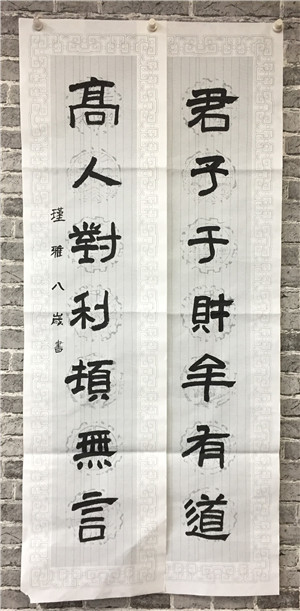 君子于財牟有道
髙人對利無言
瑾雅八歲書